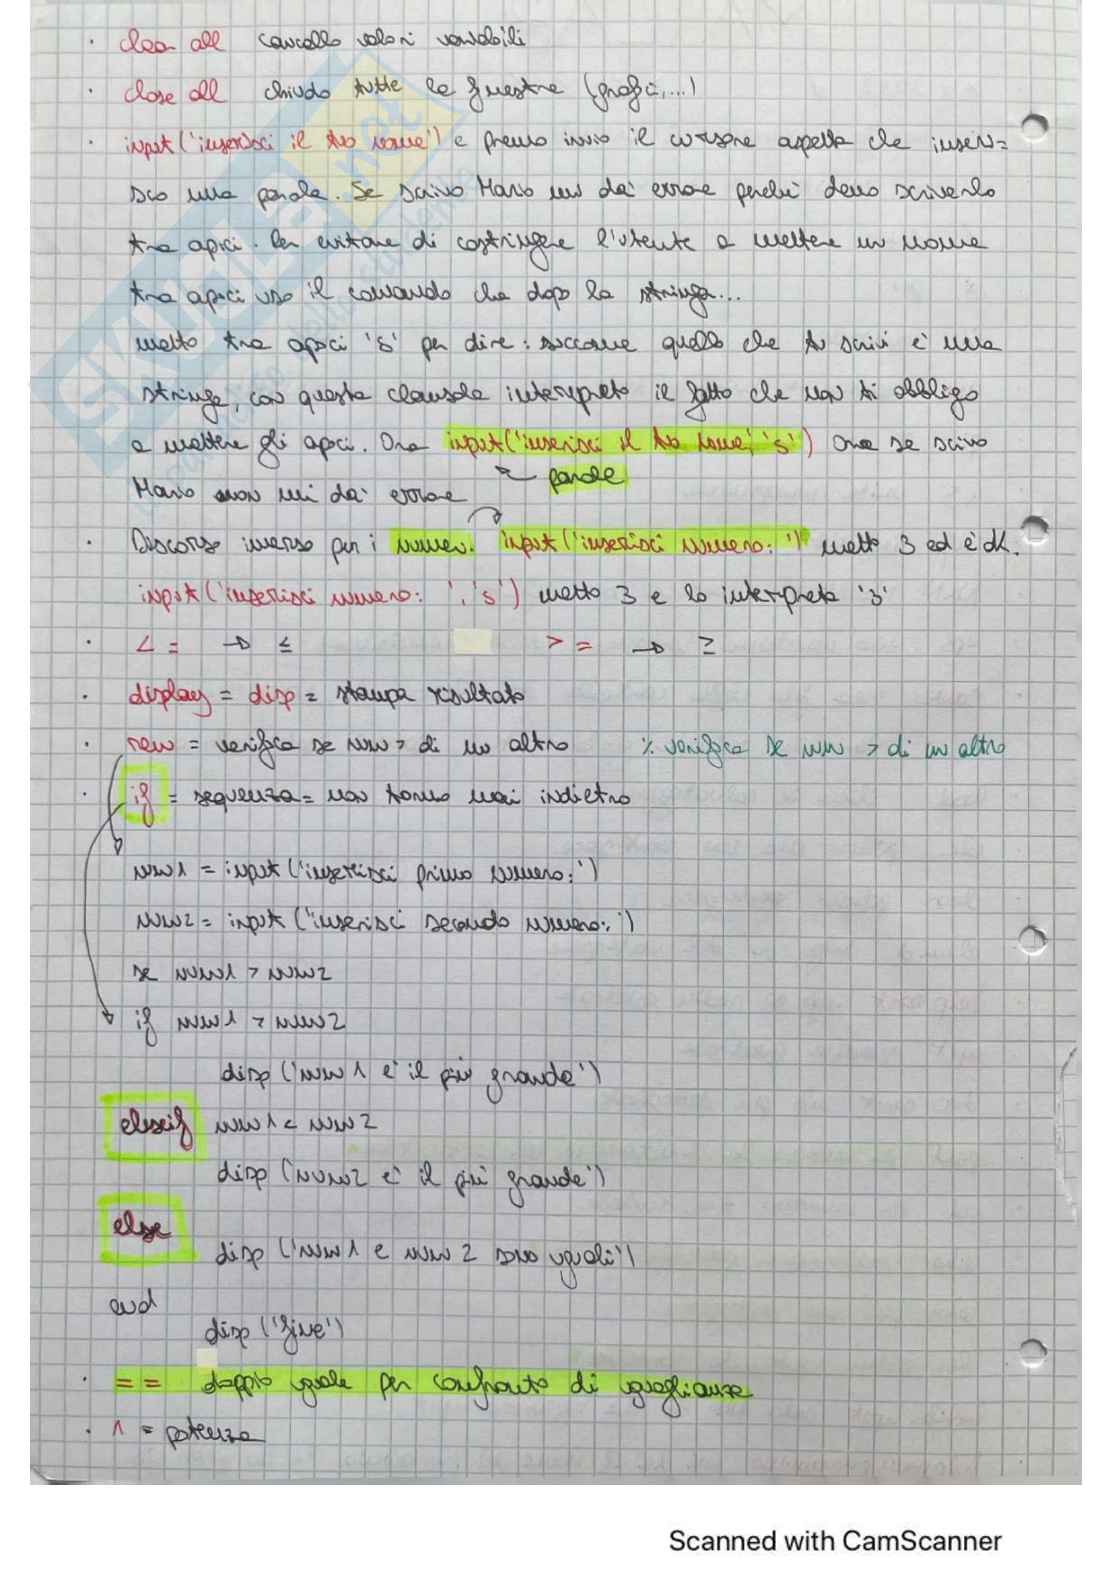 · clear all cancello valori variabili
· close all chiudo tutte le finestre (grafici,...)
· input('inserisci il tuo nome') e premo invio il cursore aspetta che inseri=
sco una parola. Se scrivo Mario mi da' errore perché devo scriverlo
tra apici. Per evitare di costringere l'utente a mettere un nome
tra apici uso il comando che dopo la stringa...
metto tra apici 's' per dire: siccome quello che tu scrivi è una
stringa, con questa clausola interpreto il fatto che non ti obbligo
a mettere gli apici. Ora input('inserisci il tuo nome','s') ora se scrivo
Mario non mi da' errore parole
· Discorso inverso per i numeri. input('inserisci numero: ') metto 3 ed è ok.
input('inserisci numero: ','s') metto 3 e lo interpreta '3'
· <= → ≤ >= → ≥
· display = disp = stampa risultato
· new = verifica se num > di un altro % verifica se num > di un altro
· if = sequenza = non torno mai indietro
num1 = input('inserisci primo numero:')
num2 = input('inserisci secondo numero:')
se num1 > num2
if num1 > num2
disp('num1 e' il più grande')
elseif num1 < num2
disp('num2 e' il più grande')
else
disp('num1 e num2 sono uguali')
end
disp('fine')
· == doppio uguale per confronto di uguaglianza
· ^ = potenza
SKUOLA.net
Scanned with CamScanner